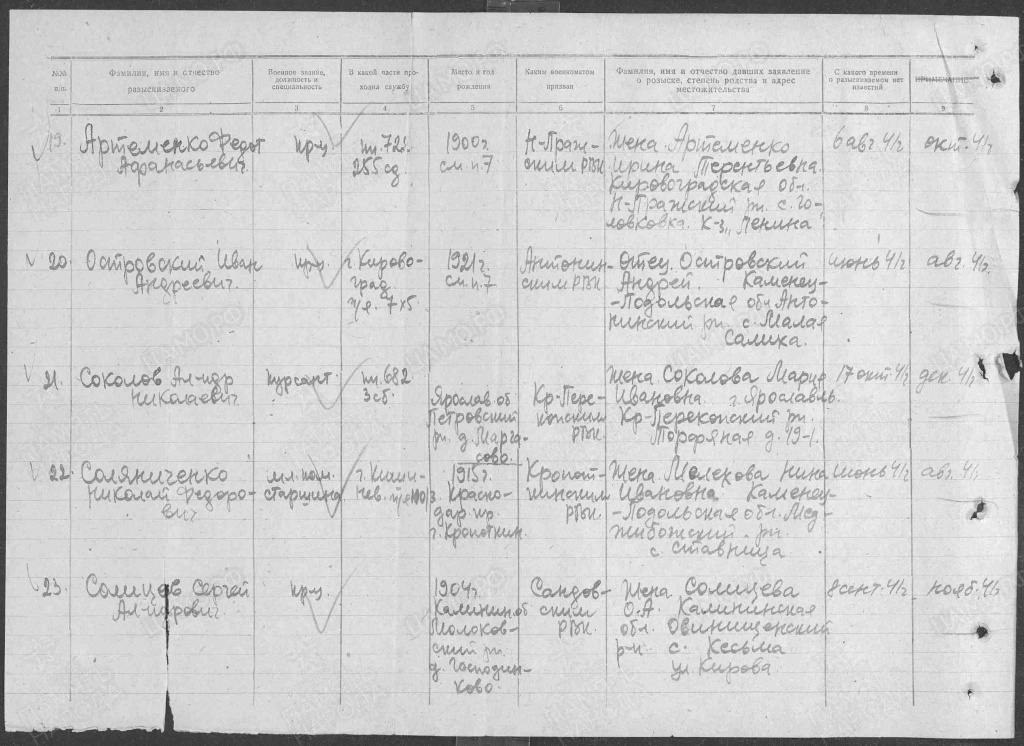 №№ п/п.
Фамилия, имя и отчество разыскиваемого
Военное звание, должность и специальность
В какой части проходил службу
Место и год рождения
Каким военкоматом призван
Фамилия, имя и отчество давших заявление о розыске, степень родства и адрес местожительства
С какого времени о разыскиваемом нет известий
ПРИМЕЧАНИЕ
1 2 3 4 5 6 7 8 9
19. Артеменко Федот
Афанасьевич.
кр-ц
пп. 721.
255 сд.
1900 г.
см. п. 7
Н-Праж-
ским РВК
Жена Артеменко
Ирина Терентьевна
Кировоградская обл.
Н-Пражский рн. с. Го-
ловковка. К-з „Ленина"
6 авг. 41 г.
окт. 41 г.
20. Островский Иван
Андреевич.
кр-ц.
г. Кирово-
град
п/я. 7
1921 г.
см. п. 7
Антонин-
ским РВК.
Отец. Островский
Андрей. Каменец-
-Подольская обл. Анто-
нинский рн. с. Малая
Салиха.
июнь 41 г
авг. 41 г.
21. Соколов Ал-др
Николаевич.
курсант.
пп. 682
3 сб.
Ярослав. об
Петровский
рн. д.
Кр-Пере-
копским
РВК.
Жена Соколова Мария
Ивановна. г. Ярославль.
Кр-Перекопский рн.
Торфяная д. 19-1.
17 окт 41 г.
дек. 41 г.
22. Соляниченко
Николай Федоро-
вич
мл. ком.
старшина
г. Киши-
нев.
1915 г.
Красно-
дар. кр.
г. Кропоткин.
Кропот-
кинским
РВК.
Жена Мелехова Нина
Ивановна Каменец-
-Подольская обл. Мед-
жибожский рн.
с. Ставница
июнь 41 г
авг. 41 г.
23. Солнцев Сергей
Ал-дрович
кр-ц.
1904 г.
Калинин. об
Молоков-
ский рн.
д. Господин-
ково.
Сандов-
ским
РВК.
Жена Солнцева
О.А. Калининская
обл. Овинищенский
р-н с. Кесьма
ул. Кирова.
8 сент. 41 г.
нояб. 41 г.